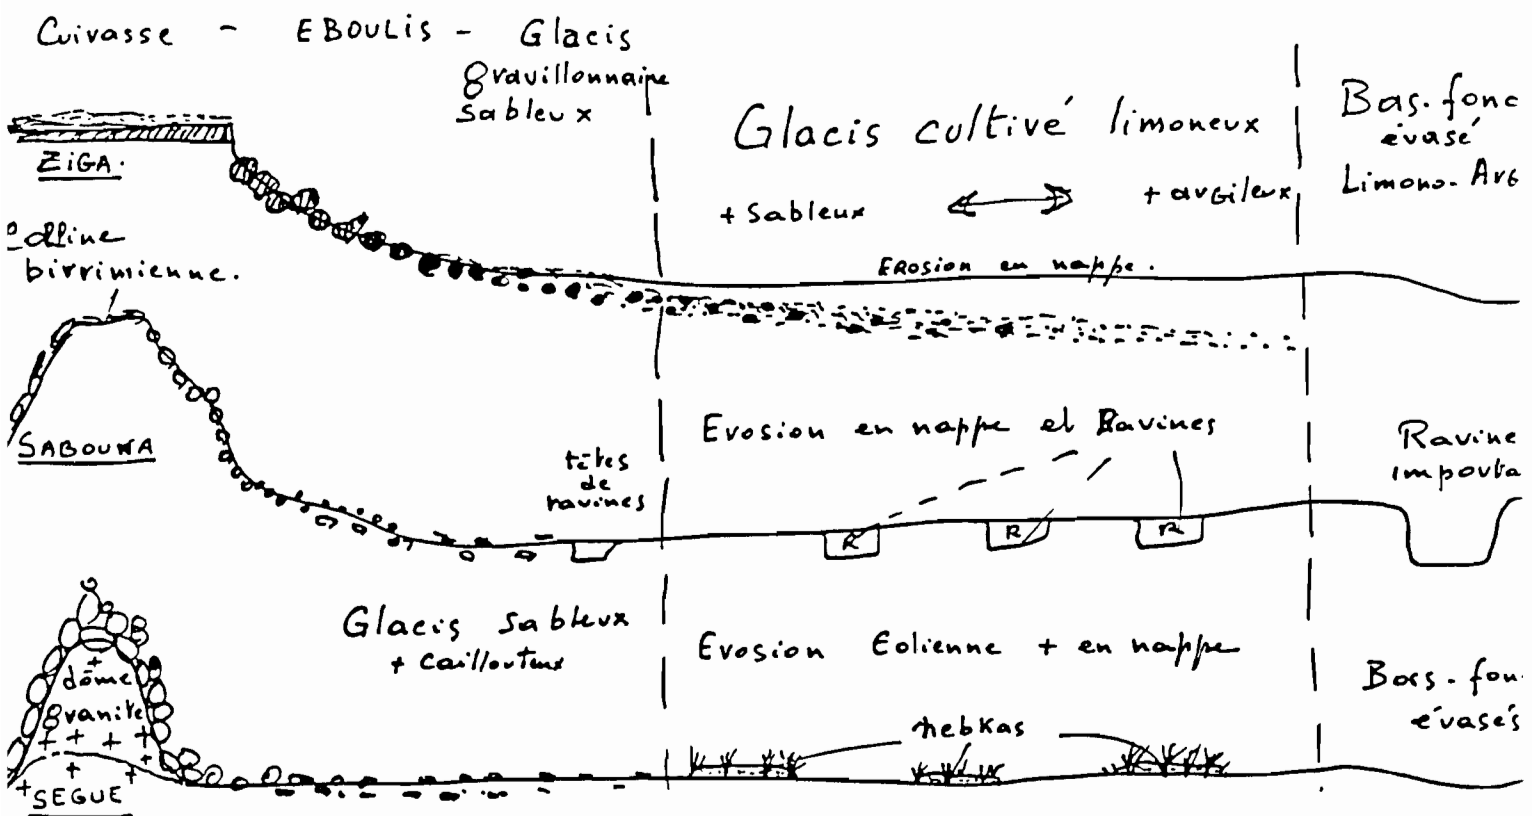 Cuirasse - EBOULIS - Glacis
gravillonnaire
sableux
Glacis cultivé limoneux
Bas-fonc
évasé
Limono-Arg
ZIGA.
+ Sableux
+ argileux
colline
birrimienne.
EROSION en nappe.
SABOUNA
têtes
de
ravines
Erosion en nappe et Ravines
Ravine
importa
R
R
R
Glacis sableux
+ caillouteux
Erosion Eolienne + en nappe
Bas-fon
évasés
dôme
granite
nebkas
SEGUE